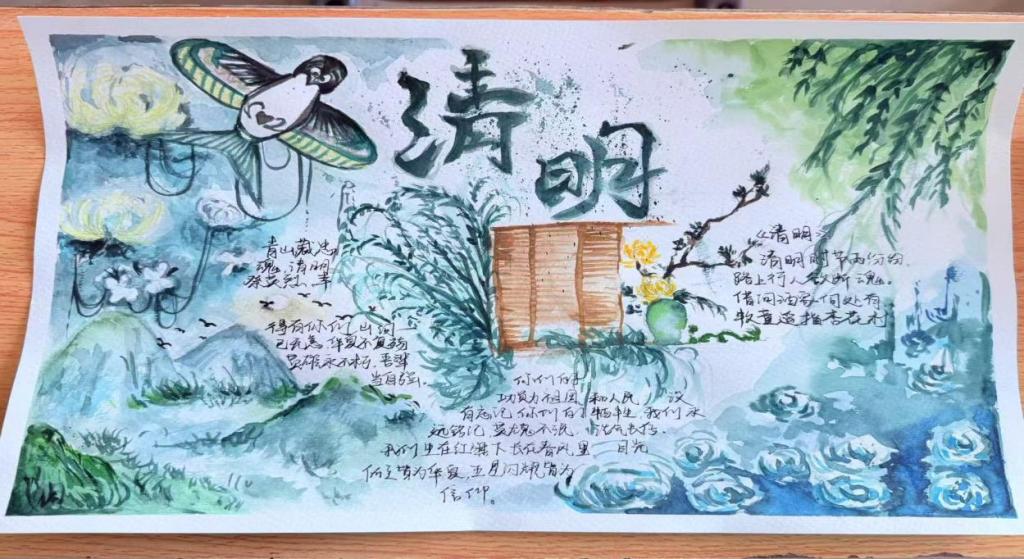 清明
青山藏忠
魂,清明
祭英烈,幸
得有你们,山河
已无恙,华夏不复弱
英雄永不朽,吾辈
当自强。
《清明》
清明时节雨纷纷,
路上行人欲断魂。
借问酒家何处有
牧童遥指杏花村
你们的
功勋祖国和人民 没
有忘记你们的牺牲,我们永
远铭记,英魂不泯,浩气长存。
我们生在红旗下长在春风里 目光
所至皆为华夏,五星闪耀皆为
信仰。